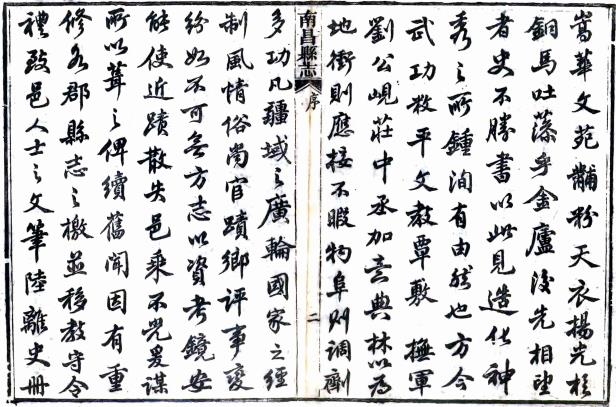 蒿華文苑黼粉天衣揚光於
銅馬吐藻乎金廬後先相望
者史不勝書以此見造化神
秀之所鍾洵有由然也方今
武功救平文教覃敷 撫軍
劉公峴莊中丞加意典林以為
地衝則應接不暇物阜則調劑
南昌縣志
序
二
多功凡疆域之廣輪國家之經
制風情俗尚官蹟鄉評事變
紛如不可無方志以資考鏡安
能使近蹟散失邑乘不覺爰謀
所以葺之俾續舊聞因有重
修各郡縣志之檄並移教守令
禮致邑人士之文筆陸離史冊